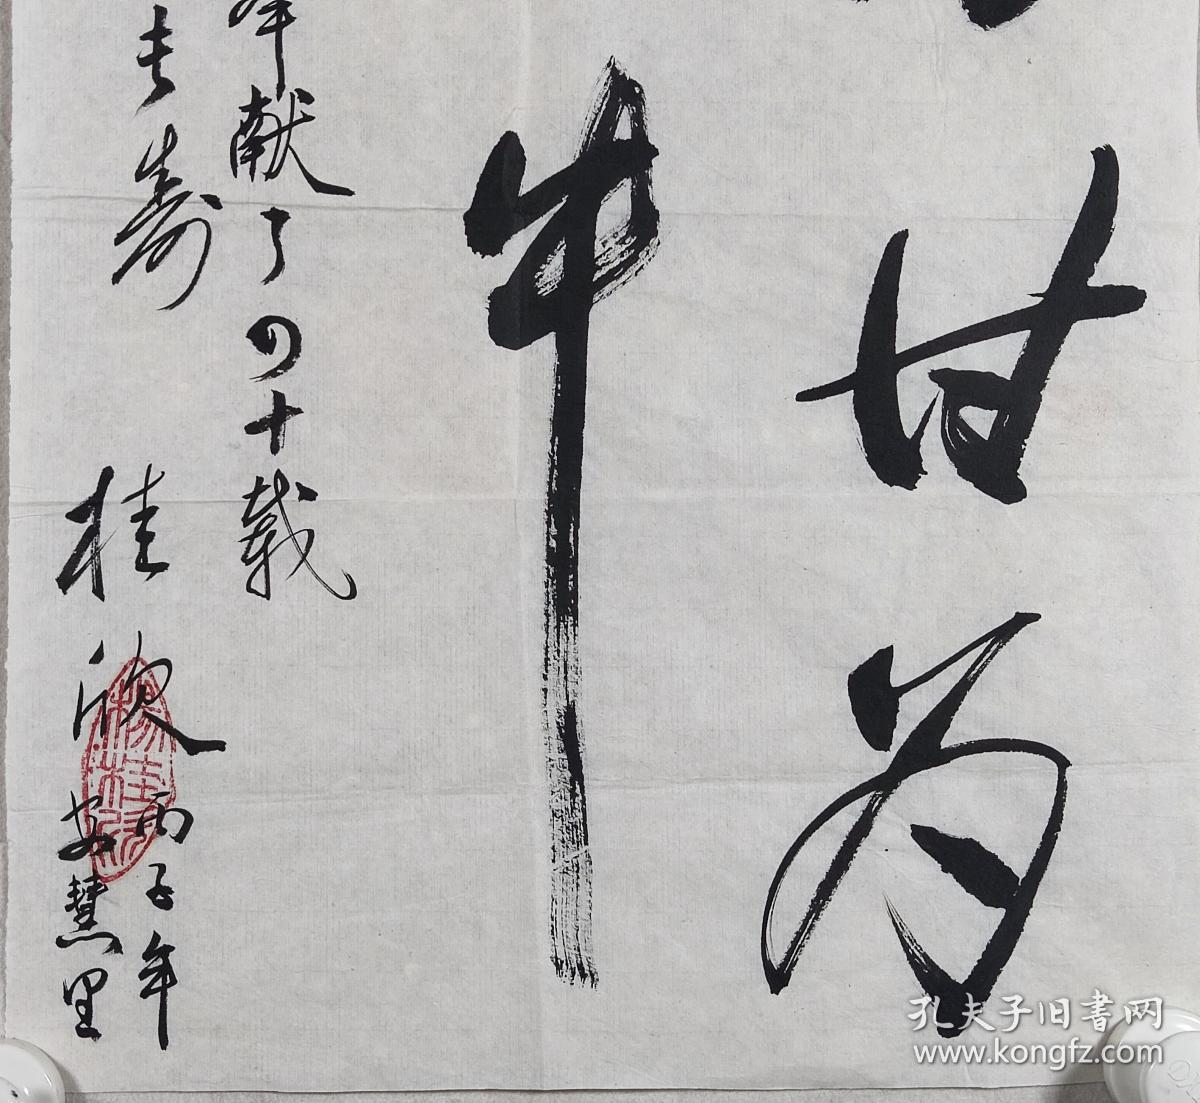 甘为
牛
奉献了四十载
长寿
桂欣
丙子年
安慧里
杨桂欣
孔夫子旧书网
www.kongfz.com